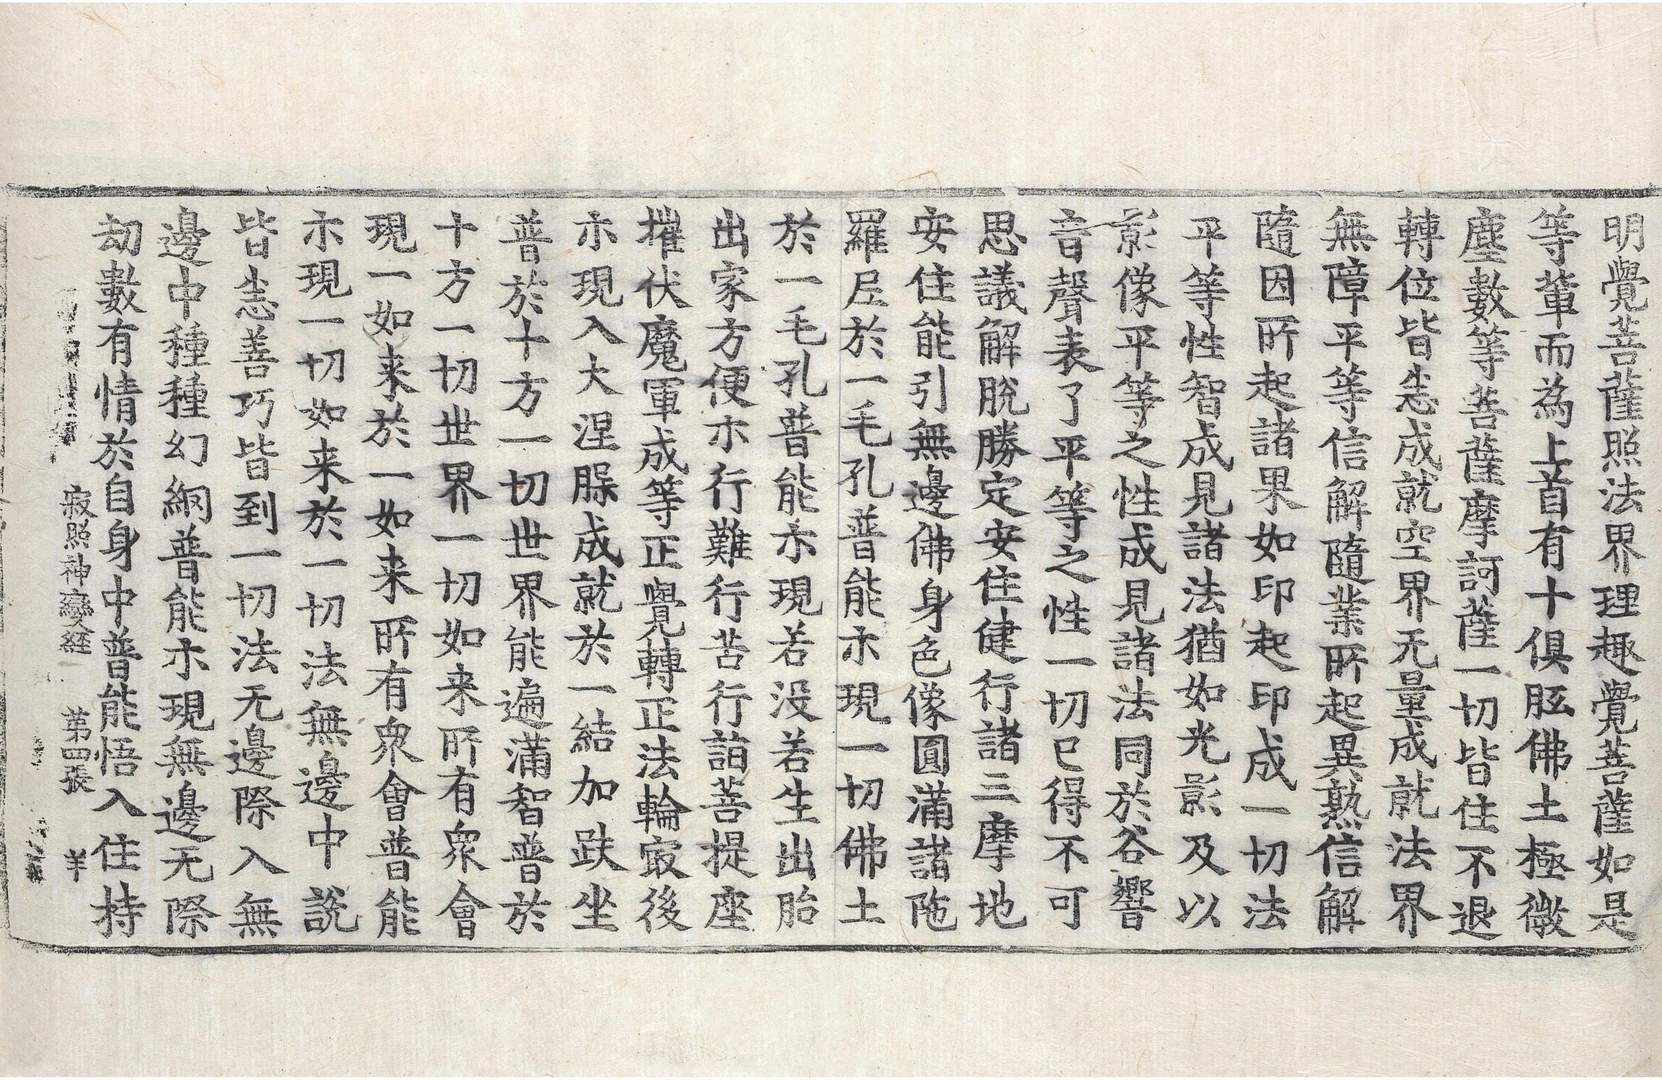 明覺菩薩照法界理趣覺菩薩如是
等軰而為上首有十俱胝佛土極微
塵數等菩薩摩訶薩一切皆住不退
轉位皆悉成就空界无量成就法界
無障平等信解隨業所起異熟信解
隨因所起諸果如印起印成一切法
平等性智成見諸法猶如光影及以
影像平等之性成見諸法同於谷響
音聲表了平等之性一切已得不可
思議解脫勝定安住健行諸三摩地
安住能引無邊佛身色像圓滿諸陁
羅尼於一毛孔普能示現一切佛土
於一毛孔普能示現若没若生出胎
出家方便示行難行苦行詣菩提座
摧伏魔軍成等正覺轉正法輪㝡後
示現入大涅槃成就於一結加趺坐
普於十方一切世界能遍滿智普於
十方一切世界一切如来所有衆會
現一如来於一如来所有衆會普能
示現一切如来於一切法無邊中說
皆悉善巧皆到一切法无邊際入無
邊中種種幻網普能示現無邊无際
劫數有情於自身中普能悟入住持
寂照神變経 第四張 羊